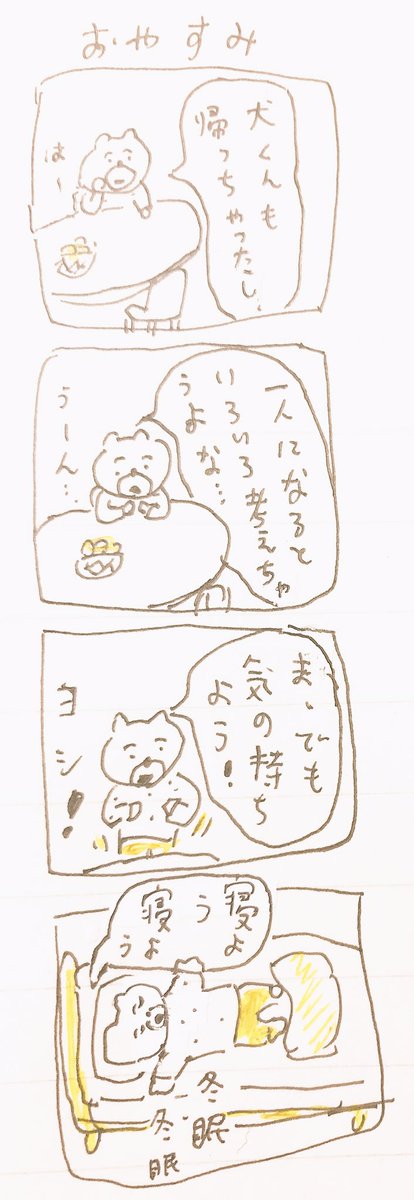 おやすみ
犬くんも
帰っちゃったし、
はー
一人になると
いろいろ考えちゃ
うよな…
うーん…
ま、でも
気の持ち
よう!
ヨシ!
寝よ
う
寝よ
うよ
冬眠
冬眠